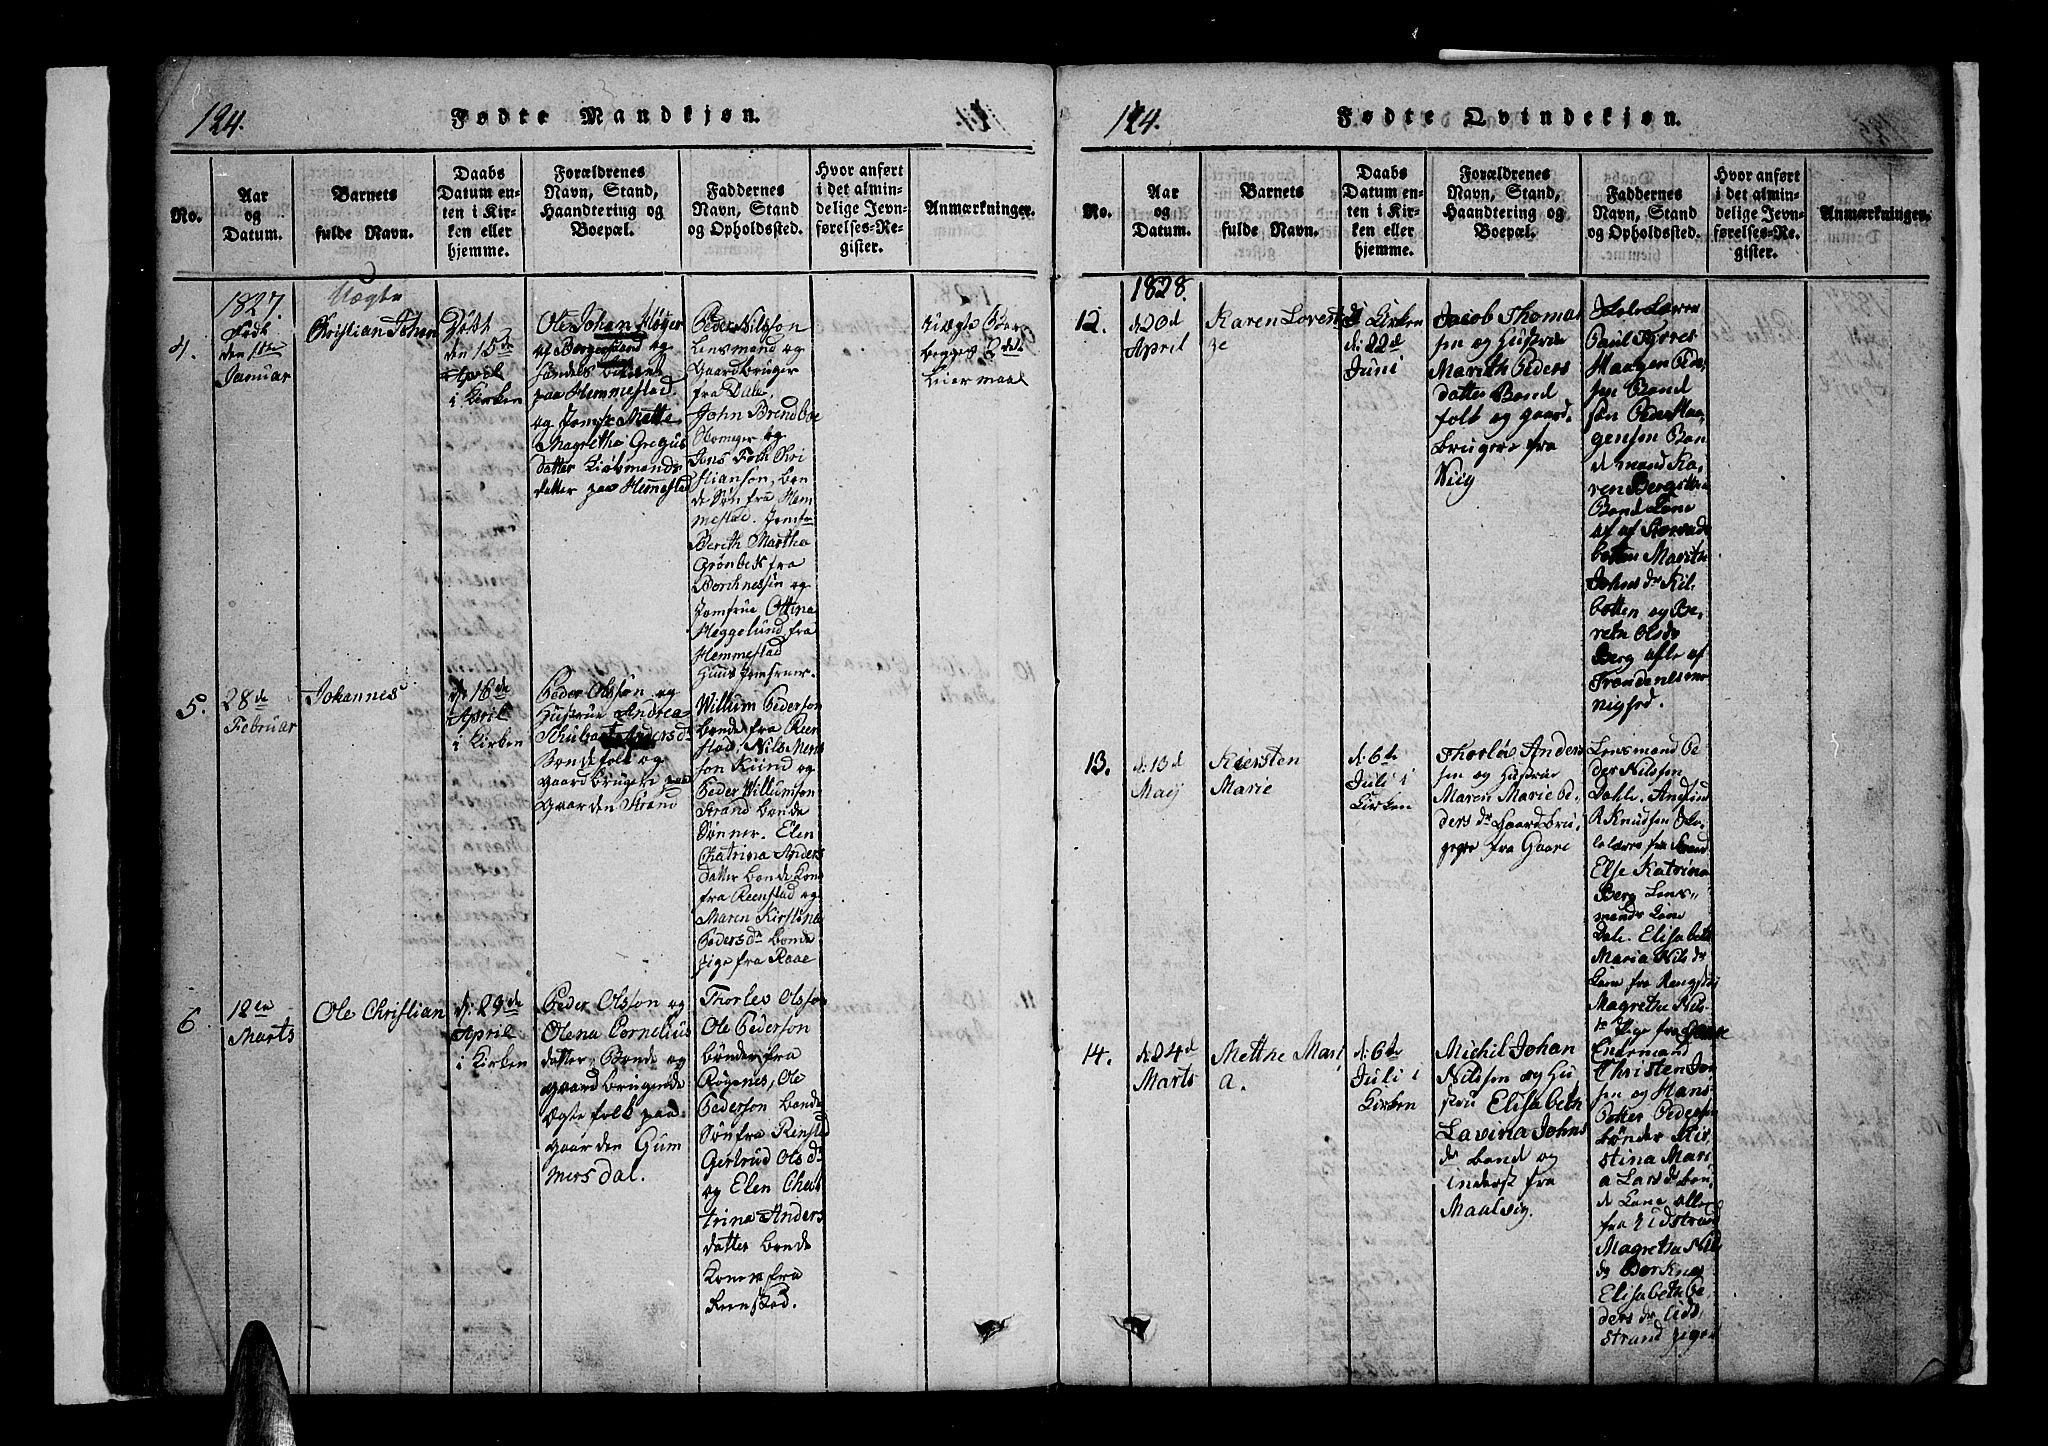 124.
Fødte Mandkjøn.
No.
Aar
og
Datum.
Barnets
fulde Navn.
Daabs
Datum en-
ten i Kir-
ken eller
hjemme.
Forældrenes
Navn, Stand,
Haandtering og
Boepæl.
Faddernes
Navn, Stand
og Opholdssted.
Hvor anført
i det almin-
delige Jevn-
førelses-Re-
gister.
Anmærkninger.
4.
1827.
Født
den 1te
Januar
Uægte
Christian Johan
Døbt
den 15de
April
i Kirken
Ole Johan
og
paa Hemmestad
og Jomfr Mette
Magretha Gregus
datter Kiøbmands
datter paa Hemestad
Peder Nilsson
Lensmand og
Gaardbruger
fra Dale,
John Brendboe
og
Jens Falk Kri
stianson, bon
de Søn fra Hem
mestad. Jomfru
Bereth Martha
Grønbek fra
Borchnessin og
Jomfrue Ottina
Heggelund fra
Hemmestad
Huus Jomfruer.
Uægte
2det
Leiermaal
5.
28de
Februar
Johannes
d: 16de
April
i Kirken
Peder Olsson og
Hustrue Andrea
Schubart Andersdr
Bondefolk og
gaardbrugere paa
Gaarden Strand
Willum Pederson
bonde fra Reen
stad, Nils Mons
son Kiind og
Peder Willumson
Strand bonde
Sønner. Elen
Chatrina Anders
datter bonde Kone
fra Reenstad og
Maren Kirstine
Pedersdr bonde
pige fra Raae
6.
12te
Marts
Ole Christian
d: 29de
April
i Kirken
Peder Olsson og
Olena Cornelius
datter Bonde og
gaardbrugende
Ægtefolk paa
gaarden Gum
mersdal.
Thorles Olsson
Ole Pederson
bønder fra
Røgenes, Ole
Pederson bonde
Søn fra Renstad
Gertrud Olsdr
og Elen Chat
trina Anders
datter bonde
Koner fra
Reenstad.
124.
Fødte Qvindekjøn.
No.
Aar
og
Datum.
Barnets
fulde Navn.
Daabs
Datum en-
ten i Kir-
ken eller
hjemme.
Forældrenes
Navn, Stand,
Haandtering og
Boepæl.
Faddernes
Navn, Stand
og Opholdssted.
Hvor anført
i det almin-
delige Jevn-
førelses-Re-
gister.
Anmærkninger.
1828.
12.
d: 20d
April
Karen Lorent
ze
i Kirken
d: 22d
Juni
Jacob Thomas
sen og Hustrue
Marith Peders
datter Bond
folk og gaard-
brugere fra
Viig
Skolelærer
Paul Torres
Haagen Pe-
sen Bond
søn Peder Haa-
gensøn Bon-
demand Ka-
ren
Bond Kone
af
botten Marith
Johns dr Kil-
botten og Be-
reth Olsdr
Berg alle af
Trondenes me-
nighed.
13.
d: 13d
Maij
Kiersten
Marie
d: 6te
Juli i
Kirken
Thorlø Anders
sen og Hustrue
Maren Marie Pe-
ders dr Gaardbru-
gere fra Gaare
Lensmand Pe-
der Nilssen
Dahle.
R Knudsen Sko-
lelærer fra
Else Katrina
Berg Lens-
mands Kone
Dale. Elisabeth
Maria Nilsdr
Kone fra
Magrethe Nils
dr Pige fra
14.
d: 24d
Marts
Metthe Mari
a.
d: 6te
Juli i
Kirken
Michel Johan
Nilssen og Hu
stru Elisabeth
Lavina Johns
dr bond og
inderst fra
Maalvig.
Christen Jo
sen og Hans
Petter Pedersen
bønder Kir
stina Mari
a Larsdr bon
de Kone alle
fra Eidstrand
Magretha Nils
dr Borknes
Elisabeth Pe
ders dr Eid
strand piger